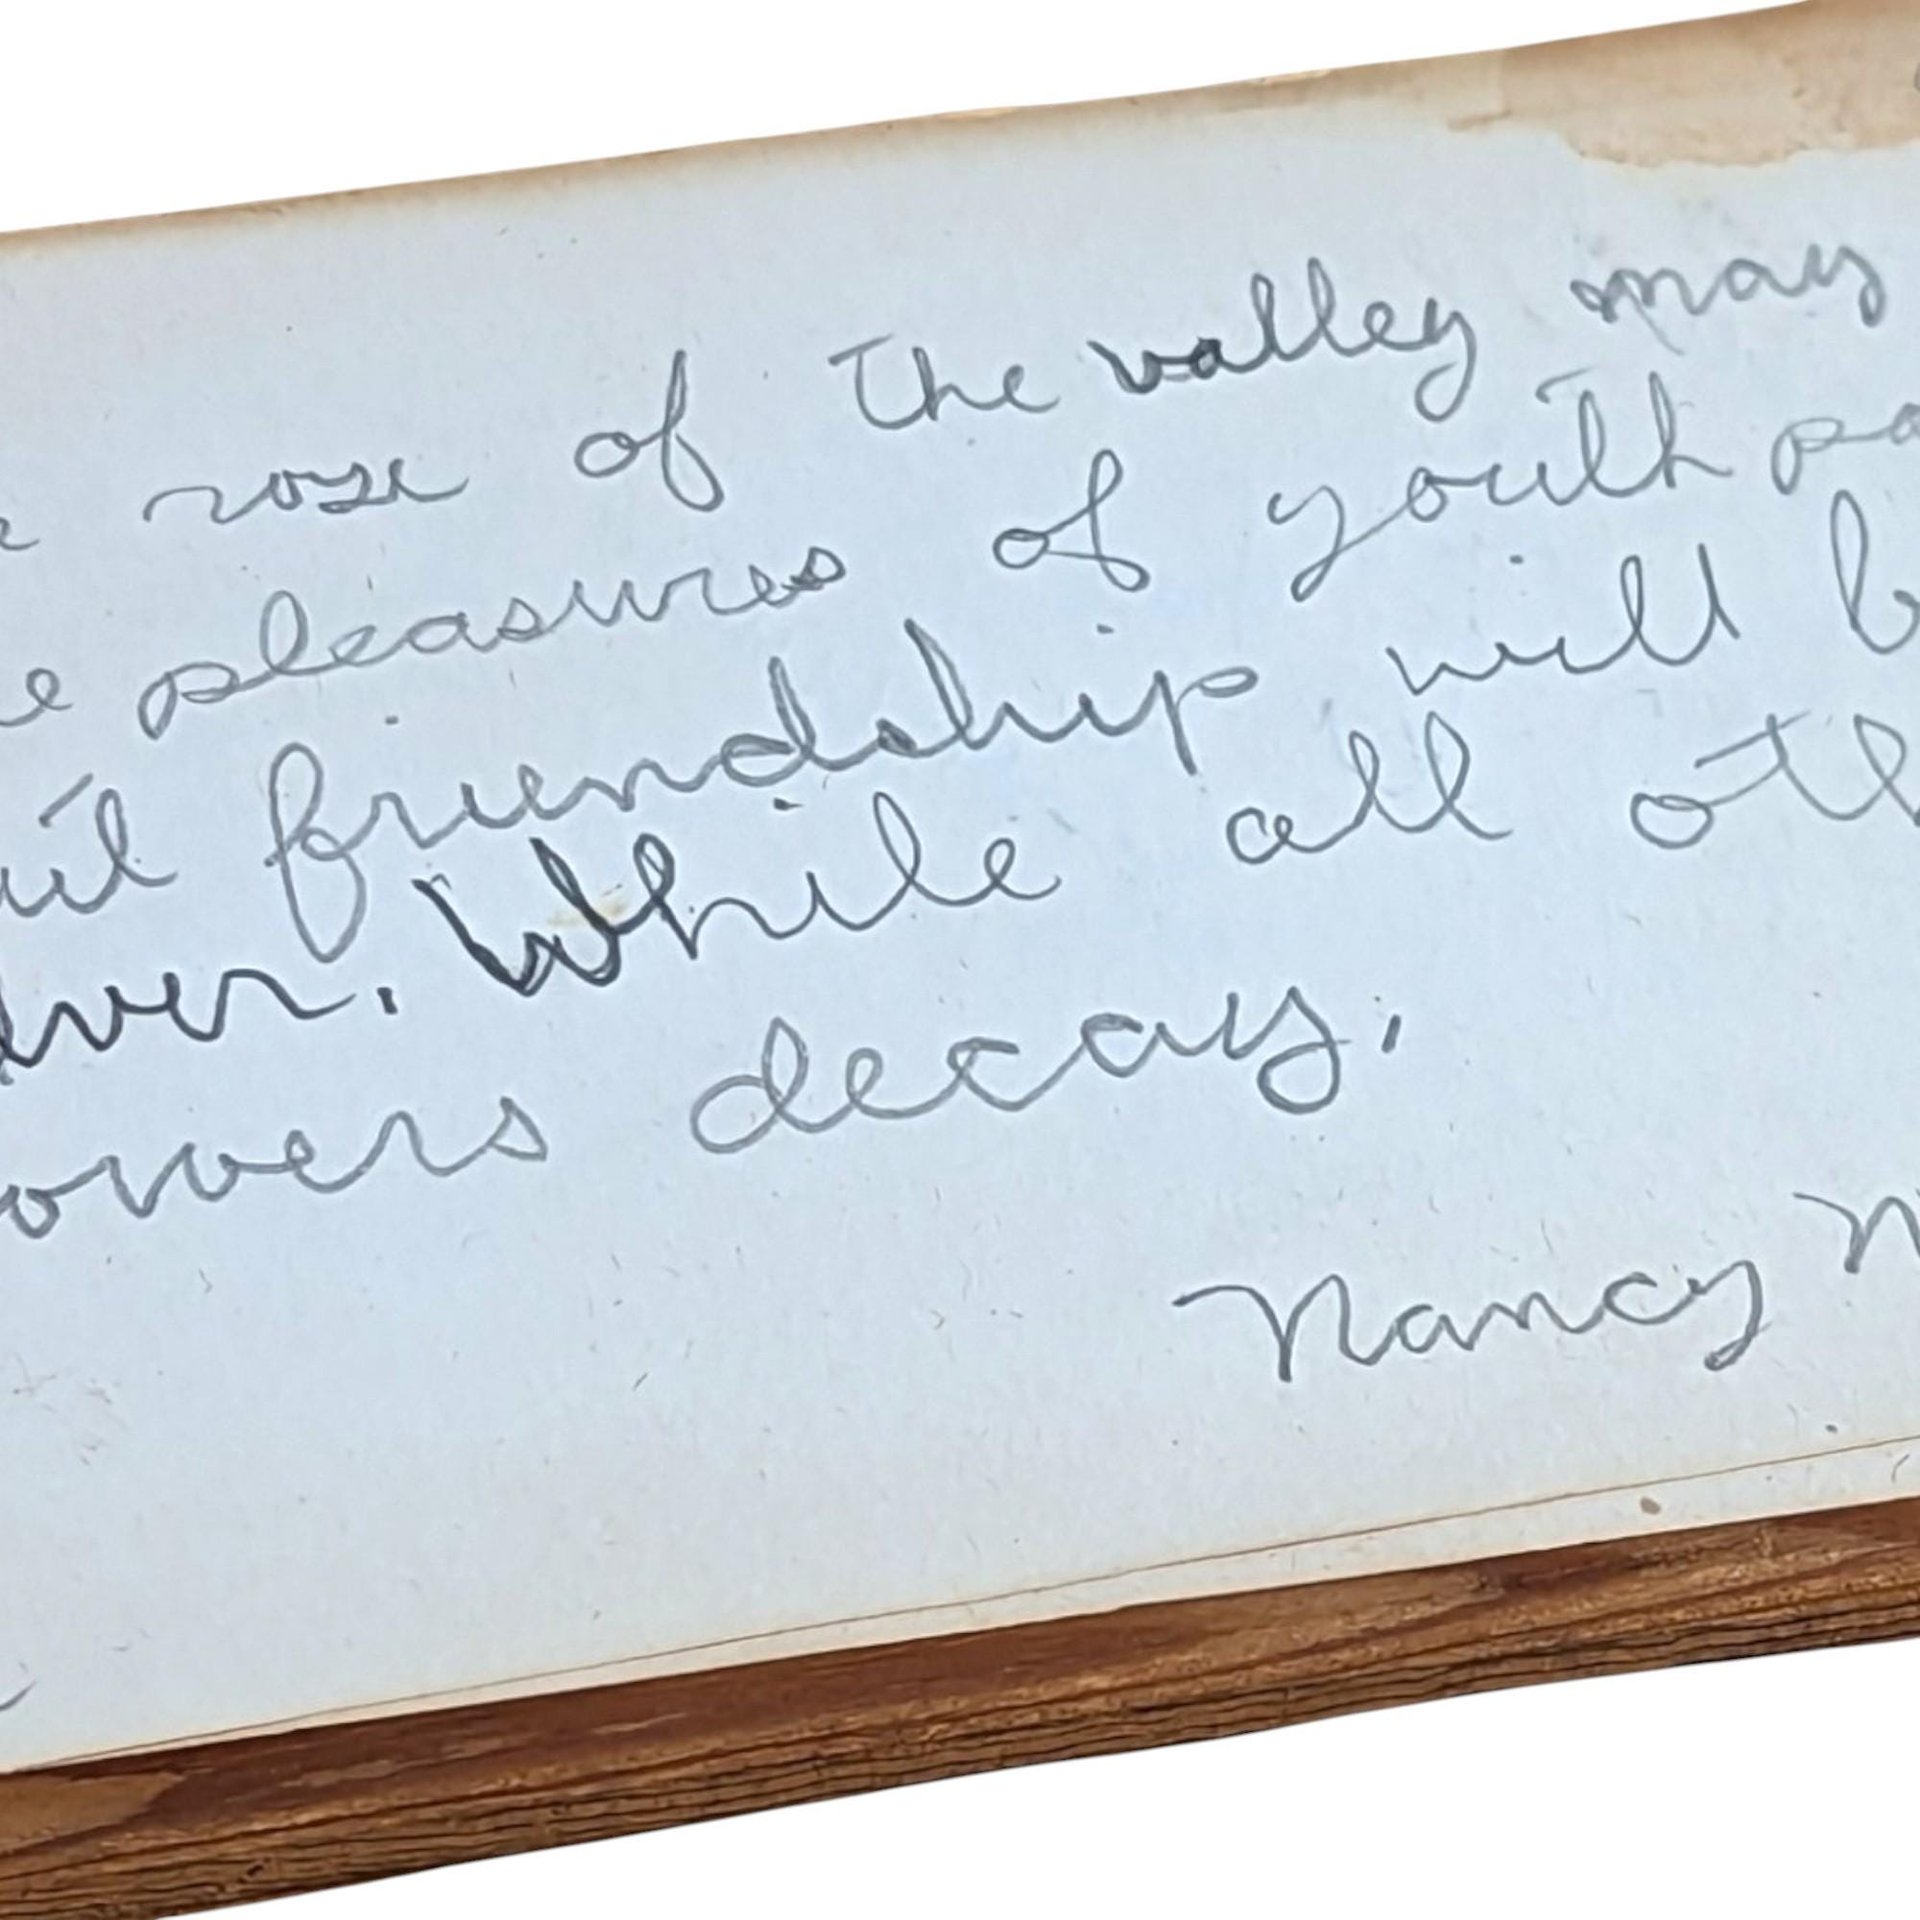 rose of the valley may
pleasures of youth pa
friendship will b
ver. While all oth
owers decay.
Nancy